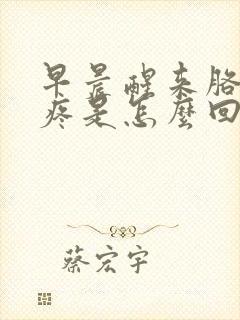 早晨醒来胳
疼是怎麼回
蔡宏宇